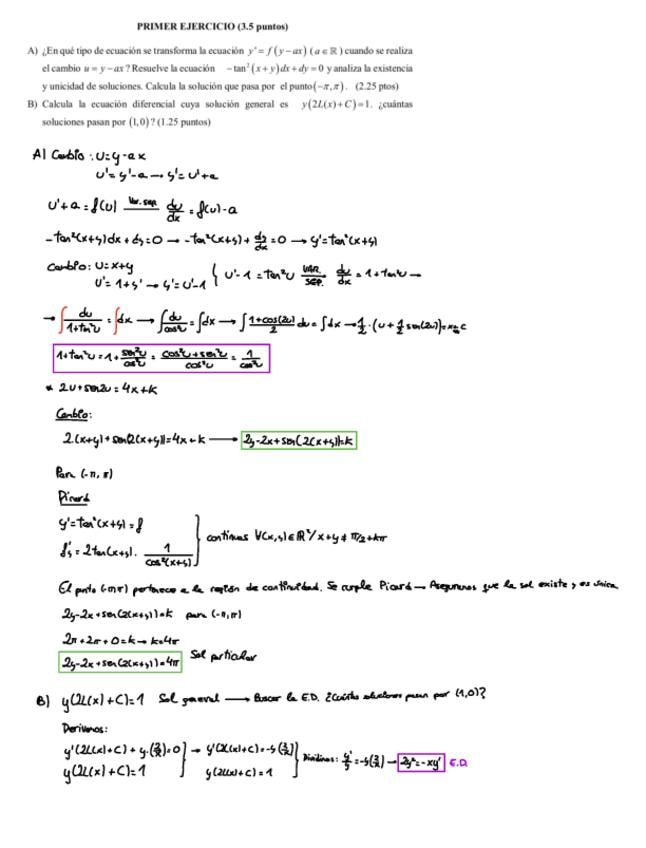 PRIMER EJERCICIO (3.5 puntos)
A) ¿En qué tipo de ecuación se transforma la ecuación y' = f(y−ax) (a ∈ ℝ) cuando se realiza
el cambio u = y − ax? Resuelve la ecuación −tan²(x+y)dx + dy = 0 y analiza la existencia
y unicidad de soluciones. Calcula la solución que pasa por el punto (−π, π). (2.25 ptos)
B) Calcula la ecuación diferencial cuya solución general es y(2L(x)+C)=1. ¿cuántas
soluciones pasan por (1,0)? (1.25 puntos)
A) Cambio: u=y-ax
u'=y'-a → y'=u'+a
u'+a=f(u) Var. sep. du/dx = f(u)-a
-tan²(x+y)dx+dy=0 → -tan²(x+y)+dy/dx=0 → y'=tan²(x+y)
Cambio: u=x+y
u'=1+y' → y'=u'-1 { u'-1=tan²u VAR. SEP. du/dx=1+tan²u →
→ ∫ du/1+tan²u = ∫dx → ∫ du/1/cos²u = ∫dx → ∫ 1+cos(2u)/2 du = ∫dx → 1/2·(u+1/2 sen(2u))=x+C
1+tan²u=1+sen²u/cos²u = cos²u+sen²u/cos²u = 1/cos²u
* 2u+sen2u=4x+k
Cambio:
2(x+y)+sen(2(x+y))=4x+k → 2y-2x+sen(2(x+y))=k
Para (-π, π)
Picard
y'=tan²(x+y)=f
f'y=2tan(x+y)· 1/cos²(x+y) } continuas ∀(x,y)∈ℝ²/x+y≠π/2+kπ
El punto (-π,π) pertenece a la región de continuidad. Se cumple Picard → Aseguramos que la sol existe y es única
2y-2x+sen(2(x+y))=k para (-π,π)
2π+2π+0=k → k=4π
2y-2x+sen(2(x+y))=4π Sol particular
B) y(2L(x)+C)=1 Sol general → Buscar la E.D. ¿Cuántas soluciones pasan por (1,0)?
Derivamos:
y'(2L(x)+C)+y·(2/x)=0 } → y'(2L(x)+C)=-y(2/x) } Dividimos: y'/y=-y(2/x) → 2y²=-xy' E.D.
y(2L(x)+C)=1 y(2L(x)+C)=1